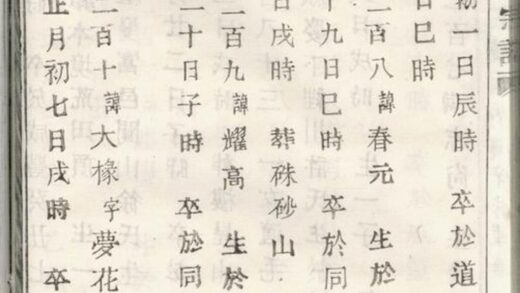 初一日辰時 卒於道
日巳時
二百八諱春元 生於
十九日巳時 卒於同
日戌時 葬硃砂山
二百九諱耀高 生於
二十日子時 卒於同
二百十諱大椽字夢花
正月初七日戌時 卒